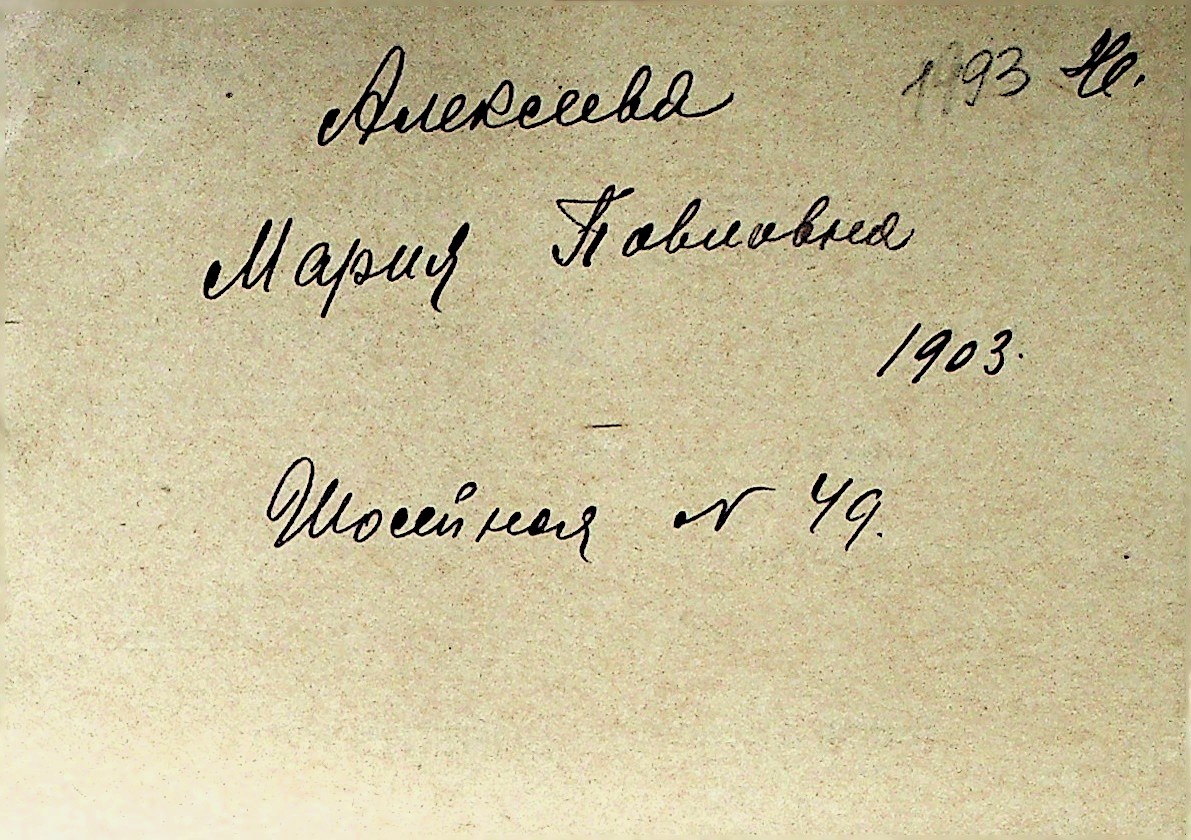 Алексеева
Н.
Мария Павловна
1903.
—
Шоссейная N 49.